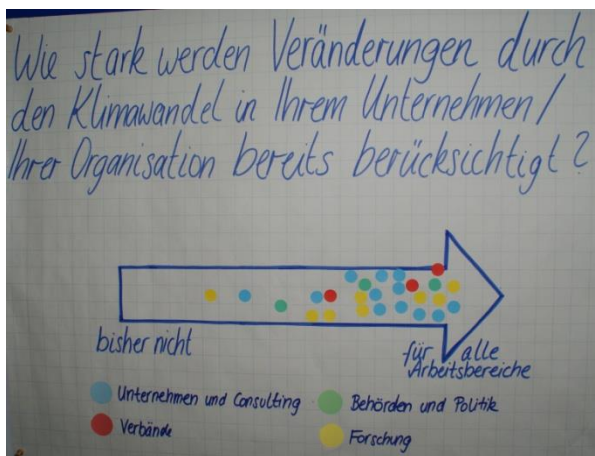 Wie stark werden Veränderungen durch
den Klimawandel in Ihrem Unternehmen/
Ihrer Organisation bereits berücksichtigt?
bisher nicht
für alle
Arbeitsbereiche
Unternehmen und Consulting
Behörden und Politik
Verbände
Forschung